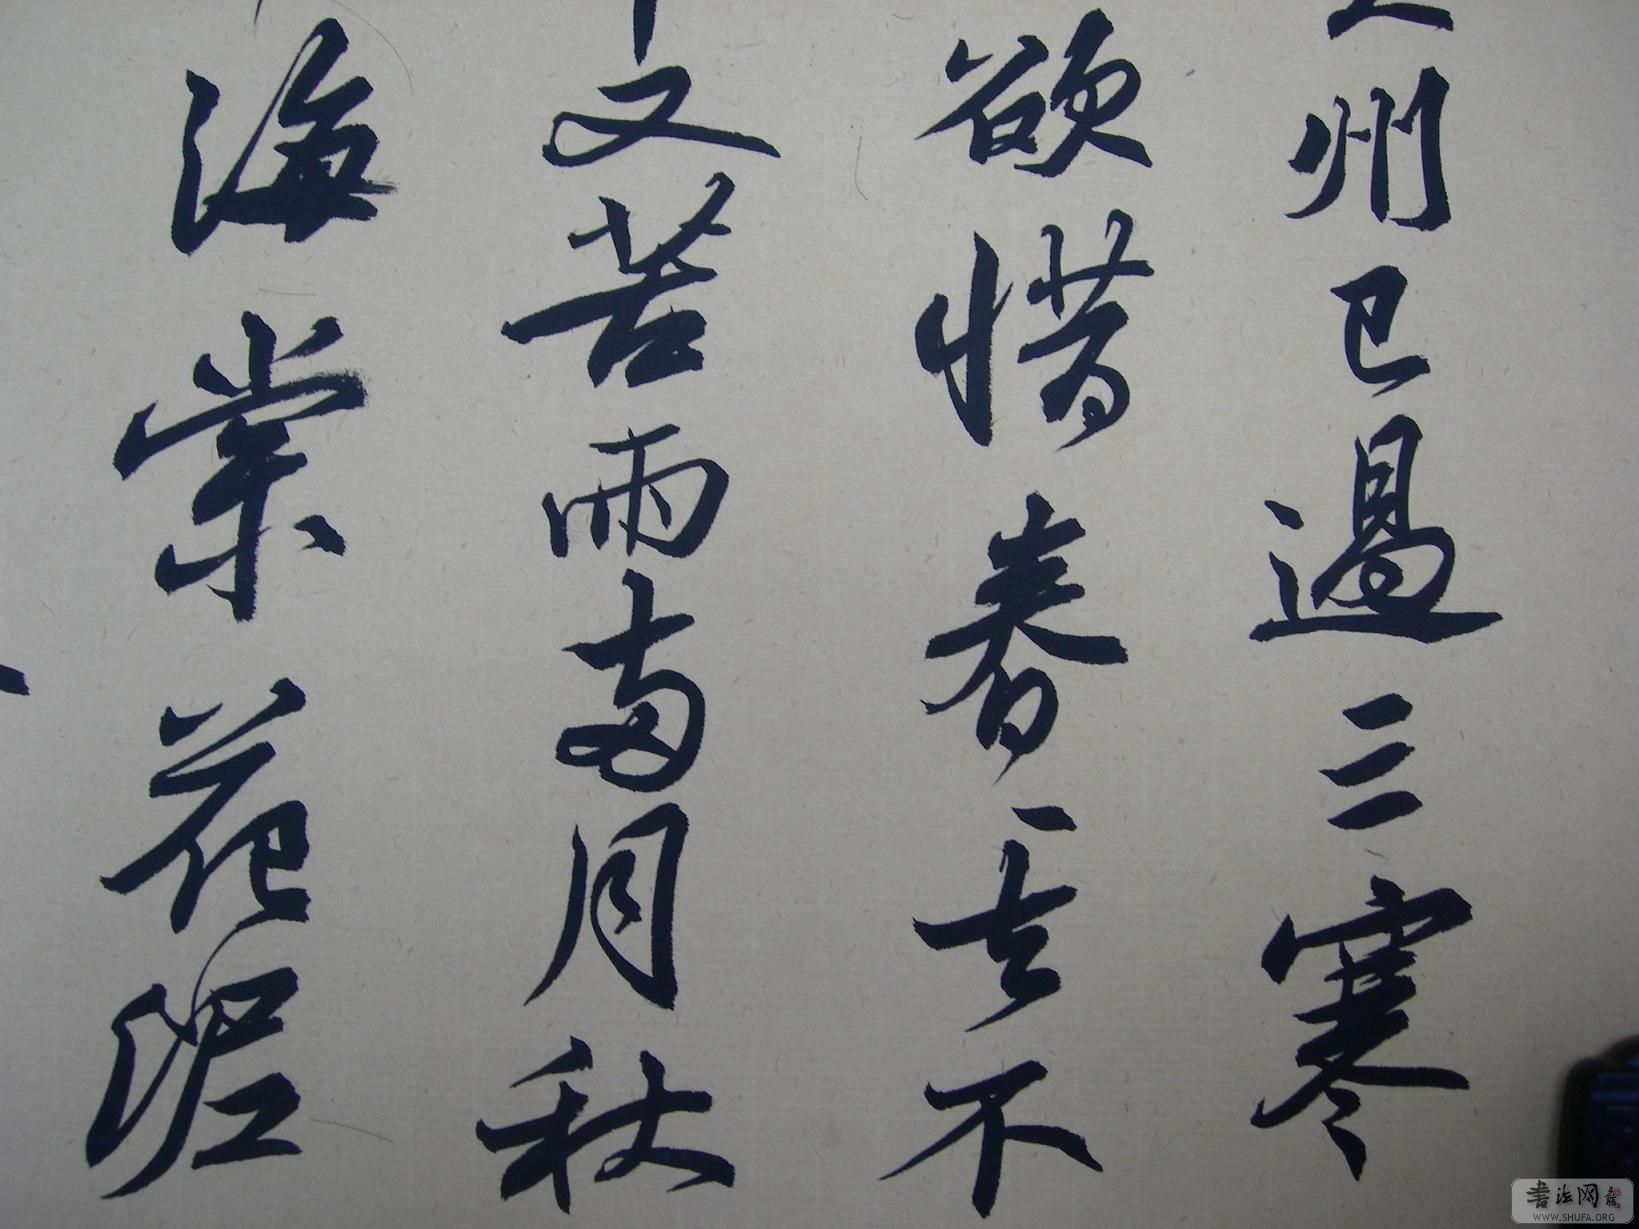 州已過三寒
欲惜春春去不
又苦雨兩月秋
海棠花泥
書法网
WWW.SHUFA.ORG